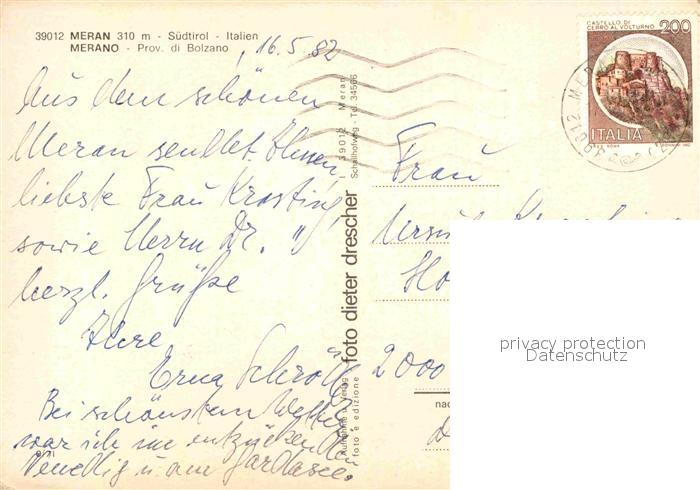 39012 MERAN 310 m - Südtirol - Italien
MERANO - Prov. di Bolzano
16.5.82
Aus dem schönen
Meran sendet Ihnen,
liebste Frau Krosting,
sowie Herrn Dr. "
herzl. Grüße
Ihre
Erna Schröt
Bei schönstem Wetter
war ich im entzückenden
Venedig u. am Gardasee.
9/71
foto dieter drescher
I 39012 Meran
Schallhofweg - Tel. 34566
Aufnahme u. Verlag
foto e edizione
CASTELLO DI
CERRO AL VOLTURNO
200
ITALIA
39012 ME
Frau
Ursula
Ho
2000
nac
privacy protection
Datenschutz